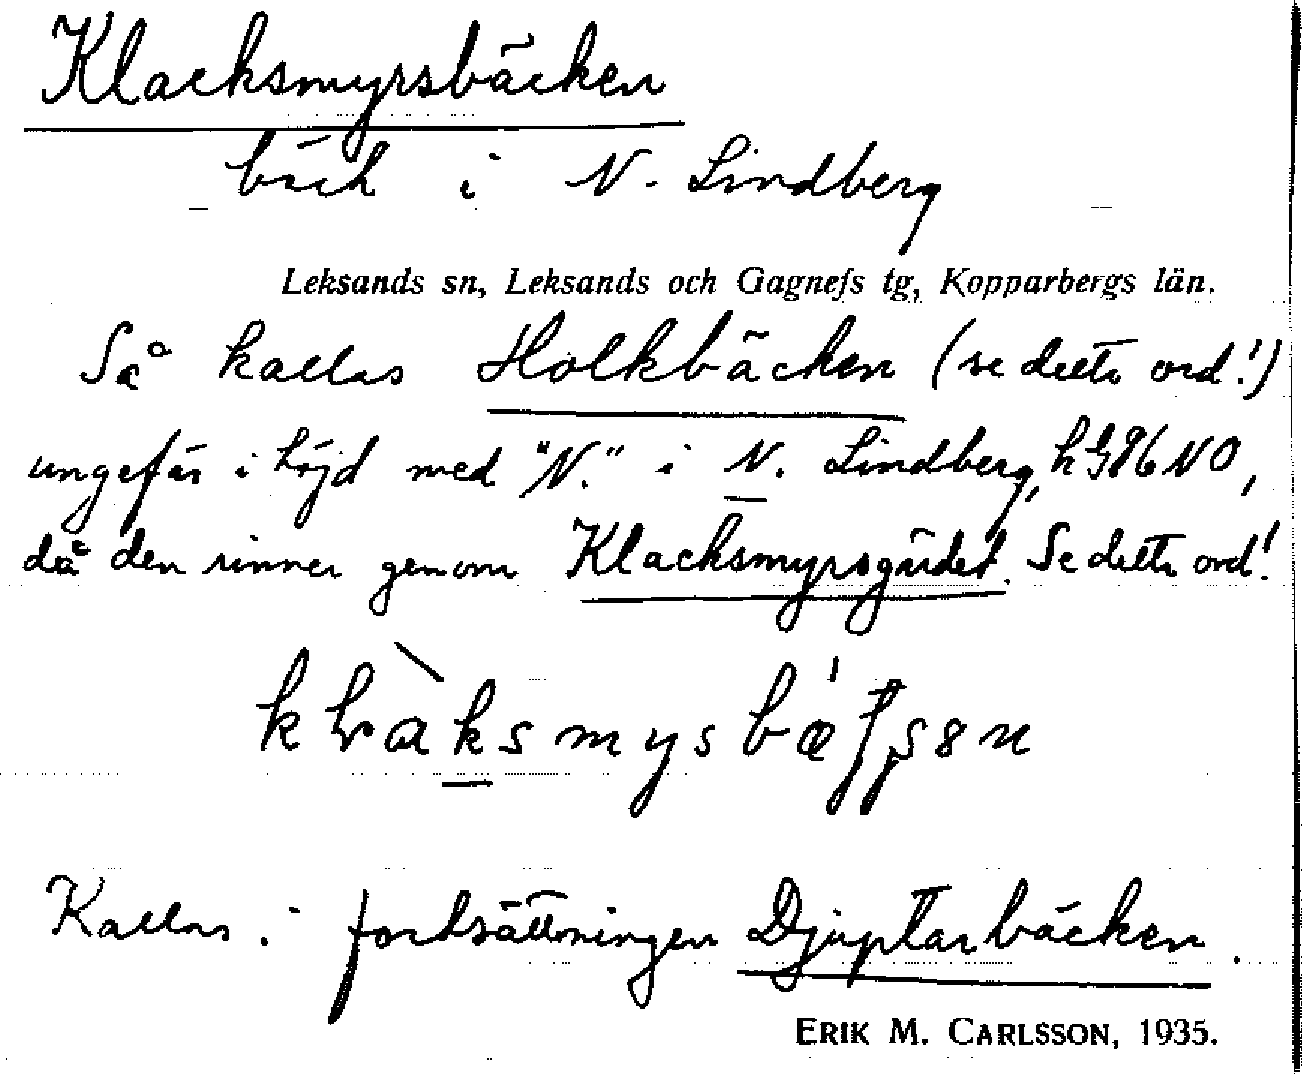 Klacksmyrsbäcken
bäck i N. Lindberg
Leksands sn, Leksands och Gagnefs tg, Kopparbergs län.
Så kallas Holkbäcken (se detta ord!)
ungefär i höjd med "N." i N. Lindberg, NO,
då den rinner genom Klacksmyrsgärdet. Se detta ord!
Kallas i fortsättningen Djuptarbäcken.
ERIK M. CARLSSON, 1935.